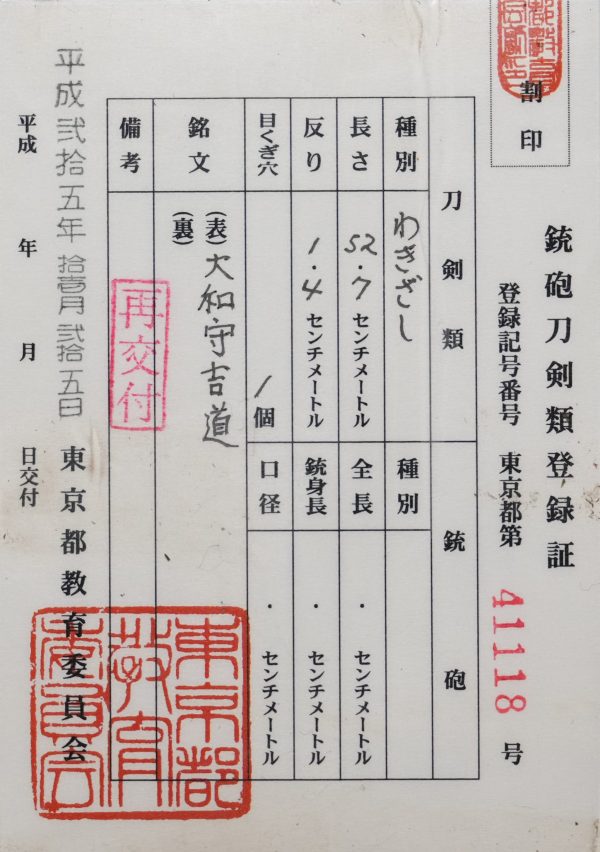 割印
銃砲刀剣類登録証
登録記号番号 東京都第 41118 号
刀剣類 銃砲
種別 わきざし 種別
長さ 52.7 センチメートル 全長 ・ センチメートル
反り 1.4 センチメートル 銃身長 ・ センチメートル
目くぎ穴 1個 口径 ・ センチメートル
銘文 (表) 大和守吉道
(裏)
備考 再交付
平成弐拾五年拾壱月弐拾五日
平成 年 月 日交付
東京都教育委員会
東京都
教育
委員会